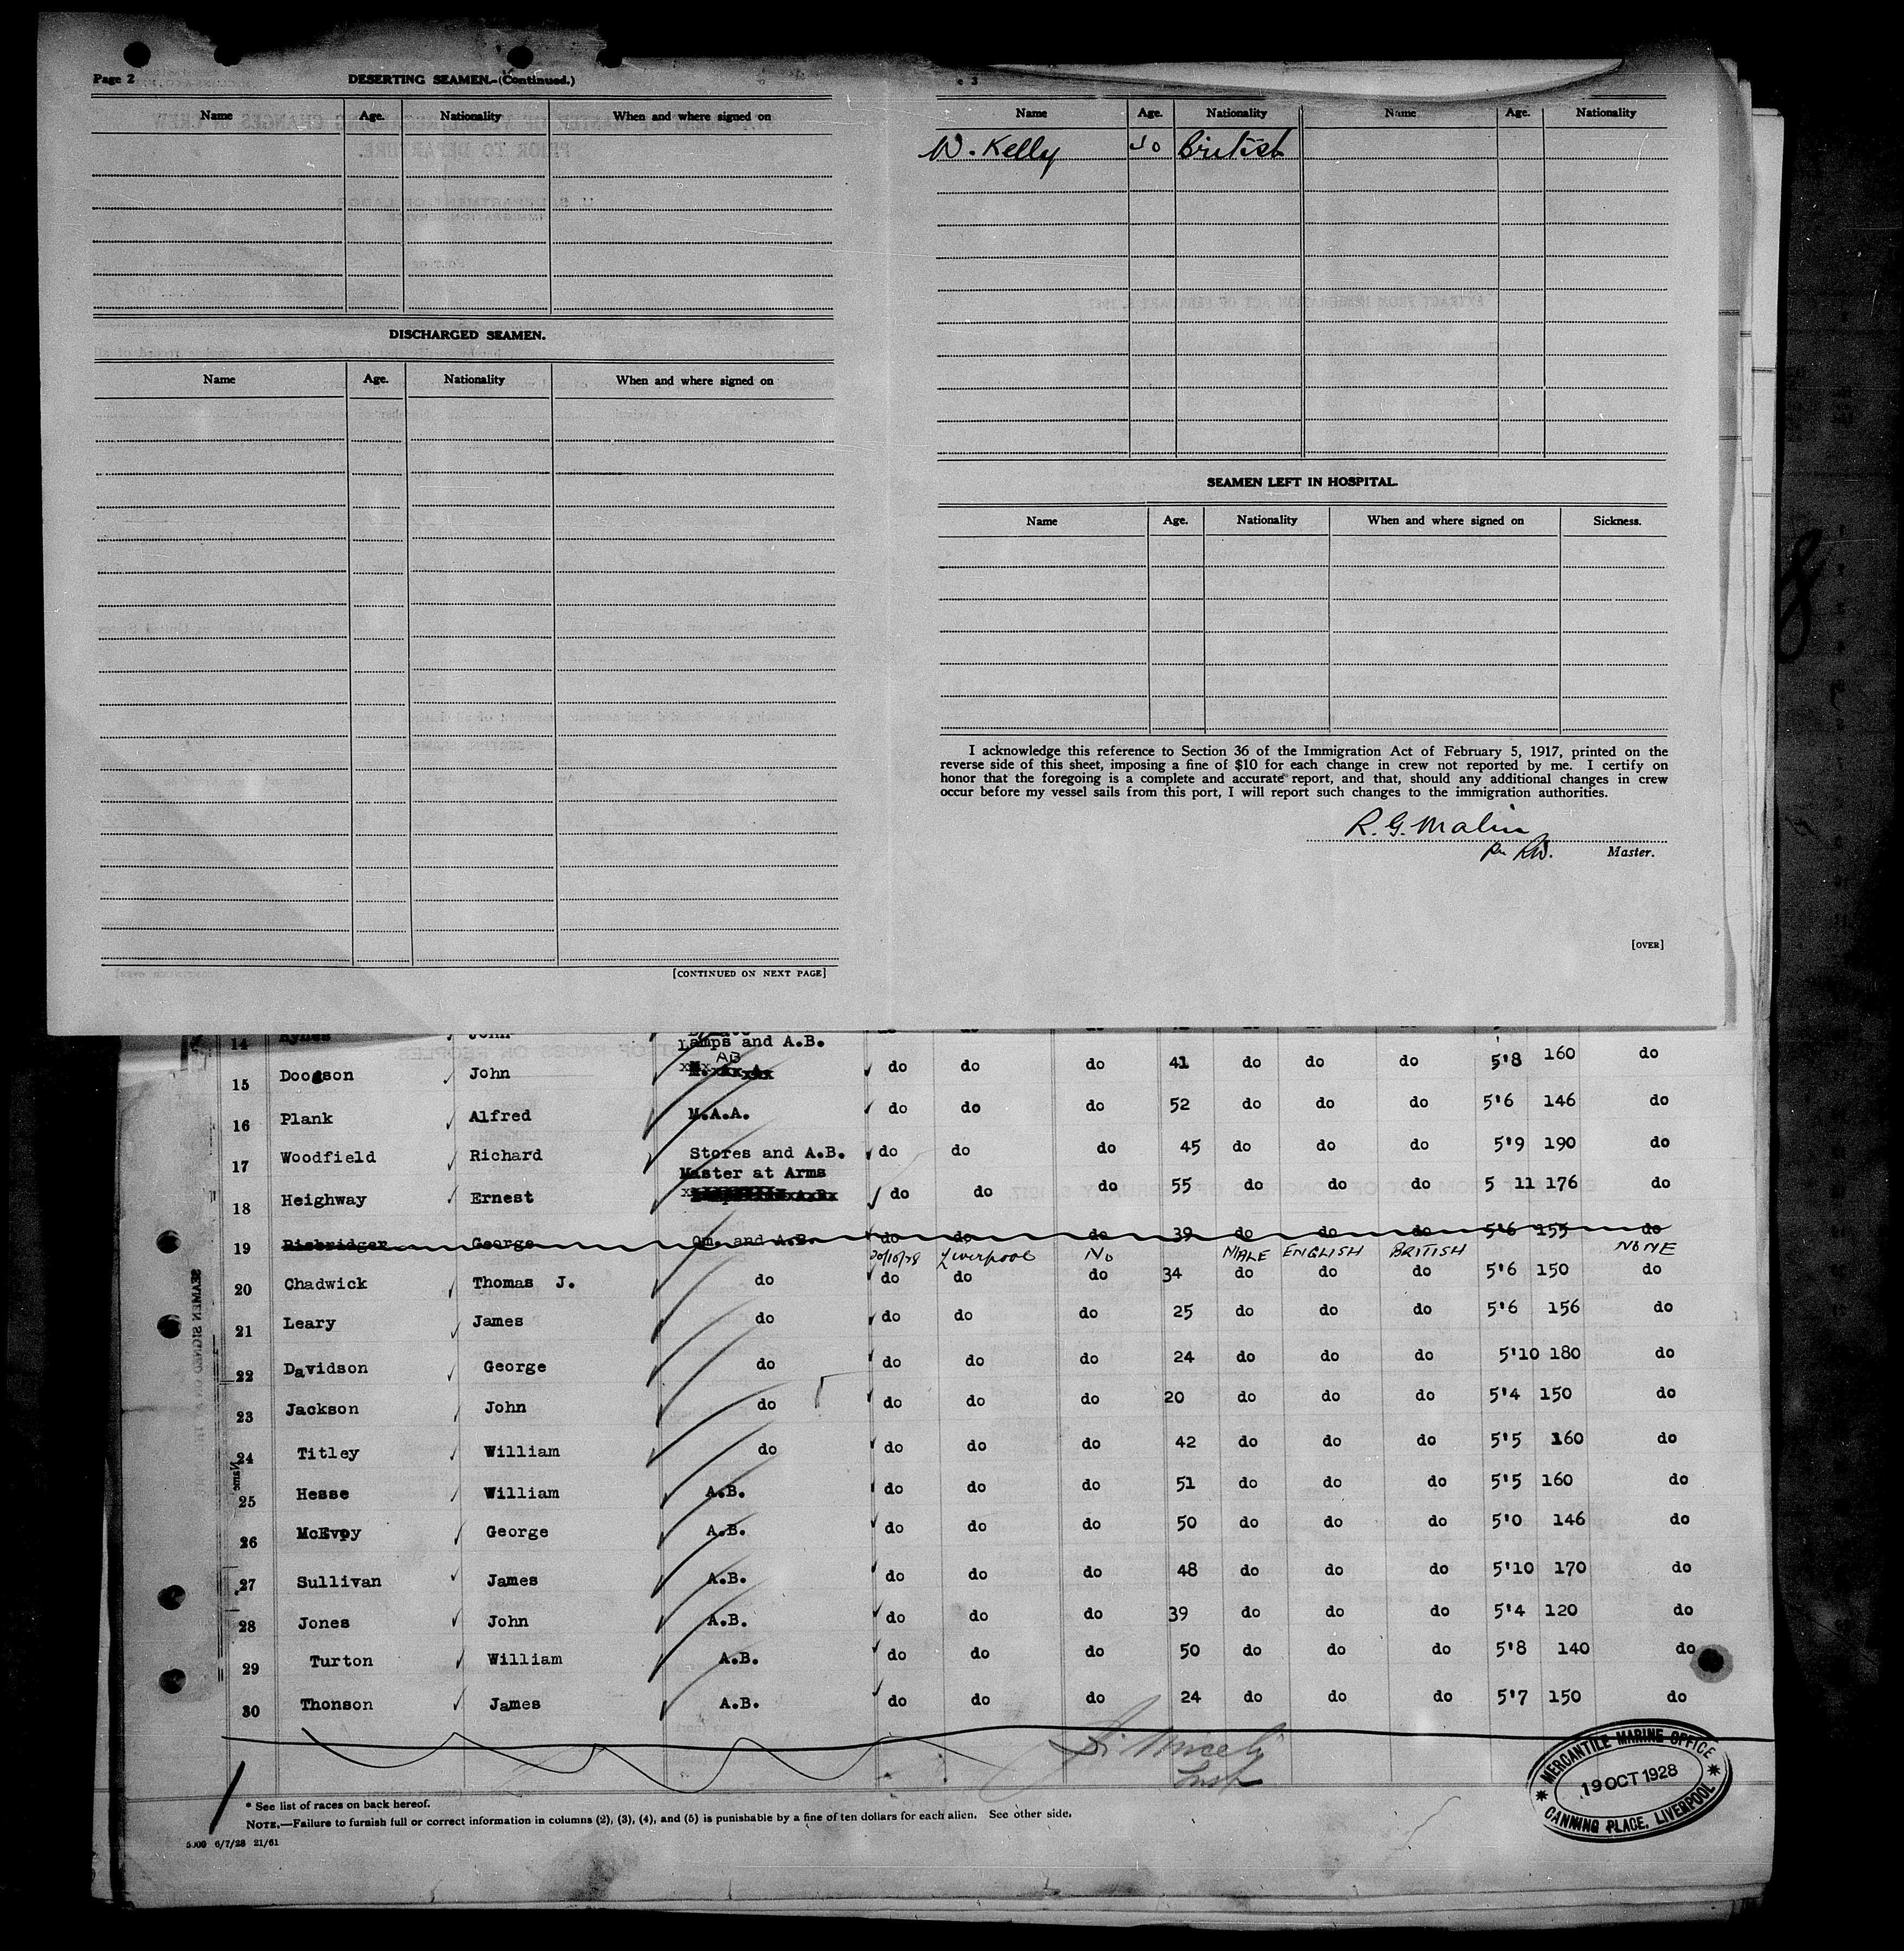 Page 2
DESERTING SEAMEN.-(Continued.)
Name Age. Nationality When and where signed on
DISCHARGED SEAMEN.
Name Age. Nationality When and where signed on
[CONTINUED ON NEXT PAGE]
3
Name Age. Nationality Name Age. Nationality
W. Kelly British
SEAMEN LEFT IN HOSPITAL.
Name Age. Nationality When and where signed on Sickness.
I acknowledge this reference to Section 36 of the Immigration Act of February 5, 1917, printed on the
reverse side of this sheet, imposing a fine of $10 for each change in crew not reported by me. I certify on
honor that the foregoing is a complete and accurate report, and that, should any additional changes in crew
occur before my vessel sails from this port, I will report such changes to the immigration authorities.
R. G. Malin
Master.
[OVER]
14 John
Lamps and A.B.
15 Doogson John AB do do do 41 do do do 5'8 160 do
16 Plank Alfred M.A.A. do do do 52 do do do 5'6 146 do
17 Woodfield Richard Stores and A.B. do do do 45 do do do 5'9 190 do
Master at Arms
18 Heighway Ernest do do do 55 do do do 5 11 176 do
19 Risbridger George Qm. and A.B. do do do 39 do do do 5'6 155 do
20/10/28 Liverpool No MALE ENGLISH BRITISH NONE
20 Chadwick Thomas J. do do do do 34 do do do 5'6 150 do
21 Leary James do do do do 25 do do do 5'6 156 do
22 Davidson George do do do do 24 do do do 5'10 180 do
23 Jackson John do do do do 20 do do do 5'4 150 do
24 Titley William do do do do 42 do do do 5'5 160 do
25 Hesse William A.B. do do do 51 do do do 5'5 160 do
26 McEvoy George A.B. do do do 50 do do do 5'0 146 do
27 Sullivan James A.B. do do do 48 do do do 5'10 170 do
28 Jones John A.B. do do do 39 do do do 5'4 120 do
29 Turton William A.B. do do do 50 do do do 5'8 140 do
30 Thonson James A.B. do do do 24 do do do 5'7 150 do
MERCANTILE MARINE OFFICE
19 OCT 1928
CANNING PLACE, LIVERPOOL
* See list of races on back hereof.
NOTE.—Failure to furnish full or correct information in columns (2), (3), (4), and (5) is punishable by a fine of ten dollars for each alien. See other side.
6/7/28 21/61